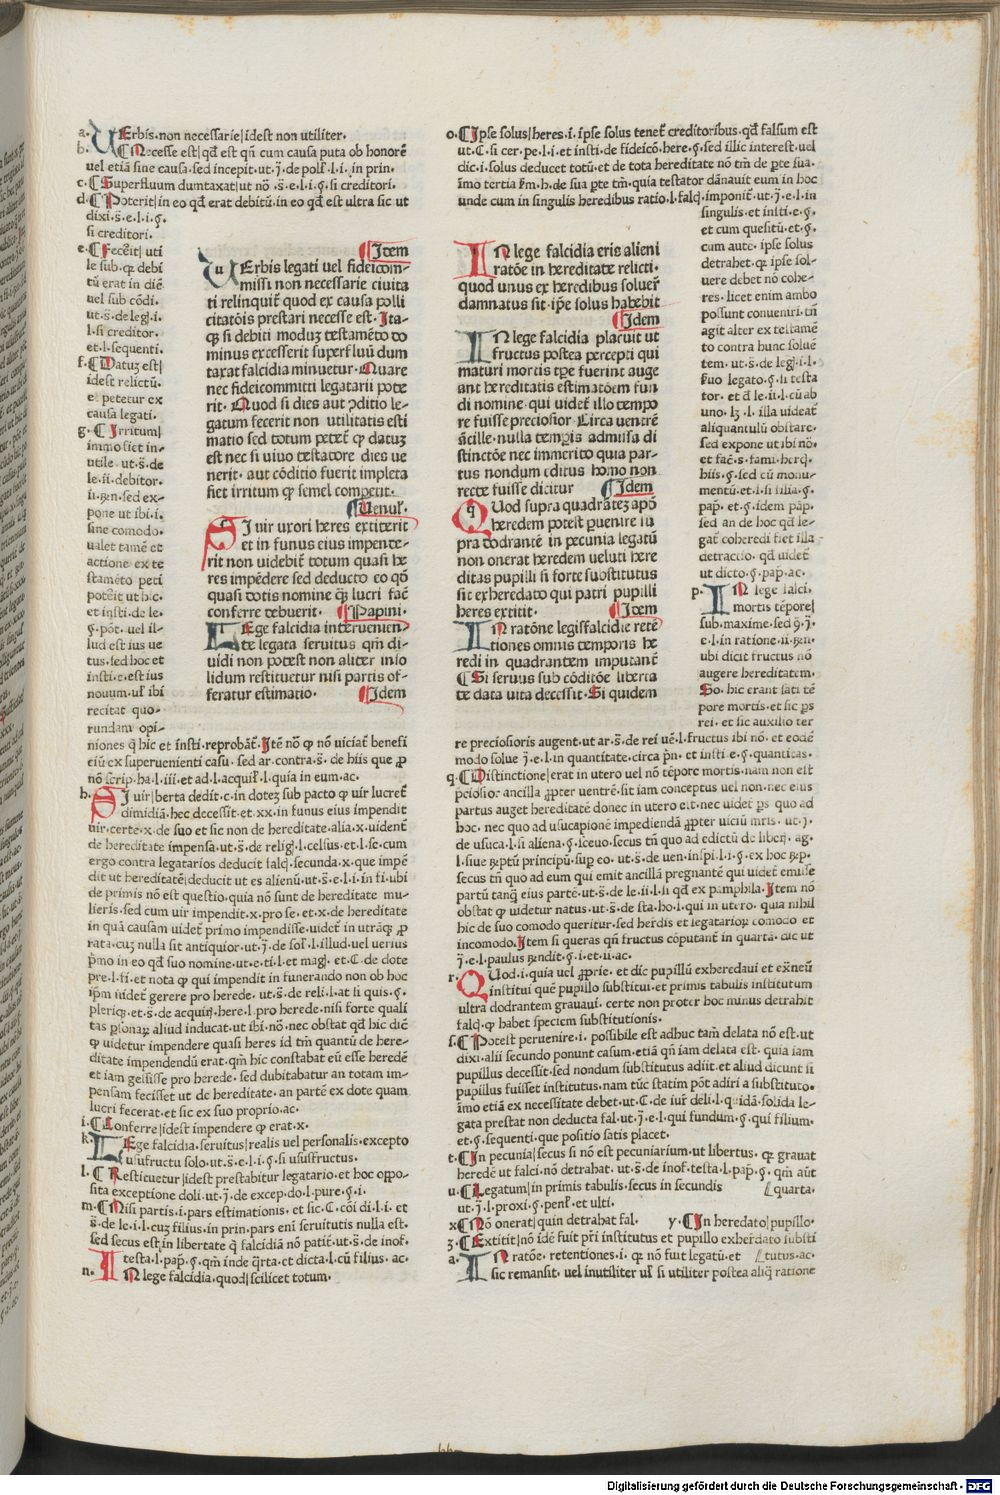 a. UErbis.non necessarie|idest non utiliter.
b. ¶Necesse est|qđ est qñ cum causa puta ob honorē
uel etiā sine causa.sed incepit.ut.j̄.de poll̄.l.i. in prin.
c. ¶Superfluum dumtaxat|ut nō .s̄.e.l.i.§.si creditori.
d. ¶Poterit|in eo qđ erat debitū.in eo qđ est ultra sic ut
dixi.s̄.e.l.i.§.
si creditori.
e. ¶Fecerit| uti
le sub.ꝙ debi
tū erat in diē
uel sub cōdi.
ut.s̄.de leg.i.
l.si creditor.
et.l.sequenti.
f. ¶Datuz est|
idest relictū.
et petetur ex
causa legati.
g. ¶Irritum|
immo fiet in-
utile.ut.s̄.de
le.ii.debitor.
ii.r̄n.sed ex-
pone ut ibi.i.
sine comodo.
ualet tamē et
actione ex te
stamēto peti
poterit ut hic.
et insti.de le.
§.pōt. uel il-
lud est ius ue
tus.sed hoc et
insti.e.est ius
nouum.ul̄ ibi
recitat quo-
rundam opi-
niones q̄ hic et insti.reprobāt̄.Itē nō ꝙ nō viciat̄ benefi
ciū ex superuenienti casu. sed ar.contra.s̄.de hiis que ꝓ
nō scrip.ha.l.iii.et ad.l.acquir̄.l.quia in eum.ac.
¶Item
UErbis legati uel fideicom-
missi non necessarie ciuita
ti relinquit̄ quod ex causa polli
citatōis prestari necesse est.Ita-
ꝙ si debiti moduz testamēto do
minus excesserit superfluū dum
taxat falcidia minuetur.Quare
nec fideicommitti legatarii pote
rit.Quod si dies aut ꝯditio le-
gatum fecerit non utilitatis esti
matio sed totum petet̄ ꝙ datuz
est nec si uiuo testatore dies ue
nerit.aut cōditio fuerit impleta
fiet irritum ꝙ semel competit.
¶Uenul̄.
SI uir uxori heres extiterit
et in funus eius impende-
rit non uidebit̄ totum quasi he
res impēdere sed deducto eo qđ
quasi dotis nomine q̄ lucri fac̄
conferre debuerit. ¶Papini.
LEge falcidia interuenien-
te legata seruitus qm̄ di-
uidi non potest non aliter in so
lidum restituetur nisi partis of-
feratur estimatio. ¶Idem
h. SI uir|berta dedit.c.in dotez sub pacto ꝙ uir lucret̄
dimidiā.hec decessit.et.xx.in funus eius impendit
uir.certe.x.de suo et sic non de hereditate.alia.x.uident̄
de hereditate impensa.ut.s̄.de reliḡ.l.celsus.et.l.se.cum
ergo contra legatarios deducit falc̄.secunda.x.que impē
dit ut hereditatē|deducit ut es alienū.ut.s̄.e.l.i.in fi.ubi
de primis nō est questio.quia nō sunt de hereditate mu-
lieris.sed cum uir impendit.x.pro se.et.x.de hereditate
in quā causam uidet̄ primo impendisse.uidet̄ in utrāqꝫ ꝓ
rata.cuz nulla sit antiquior.ut.j̄.de sol̄.l.illud.uel uerius
pmo in eo qđ suo nomine.ut.e.ti.l.et maḡ.et.C.de dote
pre.l.fi.et nota ꝙ qui impendit in funerando non ob hoc
ip̄m uidet̄ gerere pro herede. ut.s̄.de reli.l.at si quis.§.
pleriqꝫ.et.s̄.de acquir̄.here.l.pro herede.nisi forte quali
tas ꝑsonaꝝ aliud inducat.ut ibi.nō.nec obstat qđ hic diē
ꝙ uidetur impendere quasi heres id tm̄ quantū de here-
ditate impendendū erat.qm̄ hic constabat eū esse heredē
et iam gessisse pro herede.sed dubitabatur an totam im-
pensam fecisset ut de hereditate.an partē ex dote quam
lucri fecerat.et sic ex suo proprio.ac.
i. ¶Conferre|idest impendere ꝙ erat.x.
k. LEge falcidia.seruitus|realis uel personalis.excepto
usufructu solo.ut.s̄.e.l.i.§.si usufructus.
l. ¶Restituetur|idest prestabitur legatario.et hoc oppo-
sita exceptione doli.ut.j̄.de excep.do.l.pure.§.i.
m. ¶Nisi partis.i.pars estimationis.et sic.C.cōi di.l.i. et
s̄.de le.i.l.cuz filius.in prin.pars eni seruitutis nulla est.
sed secus est|in libertate q̄ falcidiā nō patit̄.ut.s̄.de inof.
testa.l.pap̄.§.qm̄ inde q̄rta.et dicta.l.cū filius. ac.
n. IN lege falcidia.quod|scilicet totum.
o. ¶Ipse solus|heres.i.ipse solus tenet̄ creditoribus.qđ falsum est
ut.C.si cer.pe.l.i.et insti.de fideicō.here.§.sed illic interest.uel
dic.i.solus deducet totū.et de tota hereditate nō tm̄ de pte sua.
īmo tertia fm̄.h.de sua pte tm̄.quia testator dānauit eum in hoc
unde cum in singulis heredibus ratio.l.falc̄.imponit̄.ut.j̄.e.l.in
singulis.et insti.e.§.
et cum quesitū.et.§.
cum aute. ipse solus
detrahet.ꝙ ipse sol-
uere debet nō cohe-
res.licet enim ambo
possunt conueniri.tn̄
agit alter ex testamē
to contra hunc soluē
tem.ut.s̄.de leḡ.i.l.
seruo legato.§.si testa
tor.et đ le.ii.l.cū ab
uno.lꝫ.l.illa uideat̄
aliquantulū obstare.
sed expone ut ibi nō.
et fac̄.s.fami.hercꝫ.
hiis.§.sed cū monu-
mentū.et.l.si filia.§.
pap̄.et.§.idem pāp.
sed an de hoc qđ le-
gat̄ coheredi fiet illa
detractio. qđ uidet̄
ut dicto.§.pap̄.ac.
IN lege falcidia eris alieni
ratōe in hereditate relicti.
quod unus ex heredibus soluer̄
damnatus sit.ip̄e solus habebit
¶Idem
IN lege falcidia placuit ut
fructus postea percepti qui
maturi mortis tp̄e fuerint auge
ant hereditatis estimatōem fun
di nomine.qui uidet̄ illo tempo
re fuisse preciosior.Circa uentrē
ācille.nulla temꝑis admissa di
stinctōe nec immerito quia par-
tus nondum editus homo non
recte fuisse dicitur ¶Idem
QUod supra quadrātez apđ
heredem potest ꝑuenire in
pra dodrantē in pecunia legatū
non onerat heredem ueluti here
ditas pupilli si forte substitutus
sit exheredato qui patri pupilli
heres extitit. ¶Item
IN ratōne legis|falcidie retē
tiones omnis temporis he
redi in quadrantem imputant̄
¶Si seruus sub cōditōe liberta
te data uita decessit.Si quidem
p. IN lege falci.
mortis tēpore|
sub.maxime.sed q̄.j̄.
e.l.in ratione.ii.r̄n.
ubi dicit fructus nō
augere hereditatem.
So.hic erant sati tē
pore mortis.et sic p̄s
rei. et sic auxilio ter
re preciosioris augent.ut ar.s̄.de rei uē.l.fructus ibi nō. et eodē
modo solue j̄.e.l.in quantitate.circa p̄n. et insti e.§.quantitas.
q. ¶Distinctione|erat in utero uel nō tēpore mortis.nam non est
p̄ciosior ancilla ꝓpter uentrē.sit iam conceptus uel non.nec eius
partus auget hereditatē donec in utero est.nec uidet̄ p̄s quo ad
hoc. nec quo ad usucapionē impediendā ꝓpter uiciū mr̄is. ut.j̄.
de usuca.l.si aliena.§.sceuo.secus tn̄ quo ad edictū de liber̄. ag.
l.siue r̄ptū principū.sup̄ eo.ut.s̄.de uen.inspi.l.i.§.ex hoc r̄p.
secus tn̄ quo ad eum qui emit ancillā pregnantē qui uidet̄ emisse
partū tanqꝫ eius parte.ut.s̄.de le.ii.l.si qđ ex pamphila.Item nō
obstat ꝙ uidetur natus.ut.s̄.de sta.ho.l.qui in utero. quia nihil
hic de suo comodo queritur.sed herdis et legatarioꝝ comodo et
incomodo.Item si queras qn̄ fructus cōputant̄ in quarta.dic ut
j̄.e.l.paulus r̄ndit.§.i.et.ii.ac.
r. QUod.i.quia uel ꝓprie.et dic pupillū exheredaui et exn̄eū
institui quē pupillo substitui.et primis tabulis institutum
ultra dodrantem grauaui. certe non proter hoc minus detrahit
falc̄.ꝙ habet speciem substitutionis.
s. ¶Potest peruenire.i. possibile est adhuc tam̄ delata nō est.ut
dixi.alii secundo ponunt casum.etiā qn̄ iam delata est. quia iam
pupillus decessit.sed nondum substitutus adiit.et aliud dicunt si
pupillus fuisset institutus.nam tūc statim pōt adiri a substituto.
īmo etiā ex necessitate debet.ut.C.de iur̄ deli.l.quidā.solida le-
gata prestat non deducta fal.ut.j̄.e.l.qui fundum.§.qui filium.
et.§.sequenti.que positio satis placet.
t. ¶In pecunia|secus si nō est pecuniarium.ut libertus. ꝙ grauat
heredē ut falci.nō detrahat. ut.s̄.de inof.testa.l.pap̄.§. qm̄ aūt
u. ¶Legatum|in primis tabulis.secus in secundis [quarta.
ut.j̄.l.proxi.§.penl̄.et ulti.
x ¶Nō onerat|quin detrahat fal. y. ¶In heredato|pupillo.
z. ¶Extitit|nō idē fuit pr̄i institutus et pupillo exherdato substi
a. IN ratōe. retentiones.i. ꝙ nō fuit legatū.et [tutus.ac.
sic remansit.uel inutiliter ul̄ si utiliter postea aliq̄ ratione
Digitalisierung gefördert durch die Deutsche Forschungsgemeinschaft - DFG